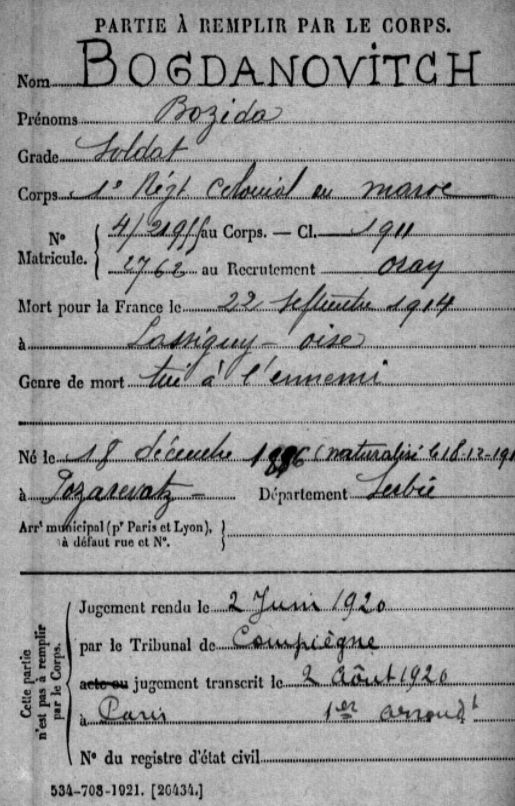 PARTIE À REMPLIR PAR LE CORPS.
Nom BOGDANOVITCH
Prénoms Bozida
Grade Soldat
Corps 1e Régt Colonial du maroc
No Matricule. 4/ au Corps. — Cl. 1911
2762 au Recrutement
Mort pour la France le 22 septembre 1914
à Lassigny - oise
Genre de mort tué à l'ennemi
Né le 18 décembre (naturalisé le 18-12-191
à Pozarevatz - Département Serbie
Arrt municipal (pr Paris et Lyon),
à défaut rue et No.
Cette partie
n'est pas à remplir
par le Corps.
Jugement rendu le 2 Juin 1920
par le Tribunal de Compiègne
acte ou jugement transcrit le 2 Août 1920
à Paris 1er arrondt
No du registre d'état civil
534-708-1921. [26434.]